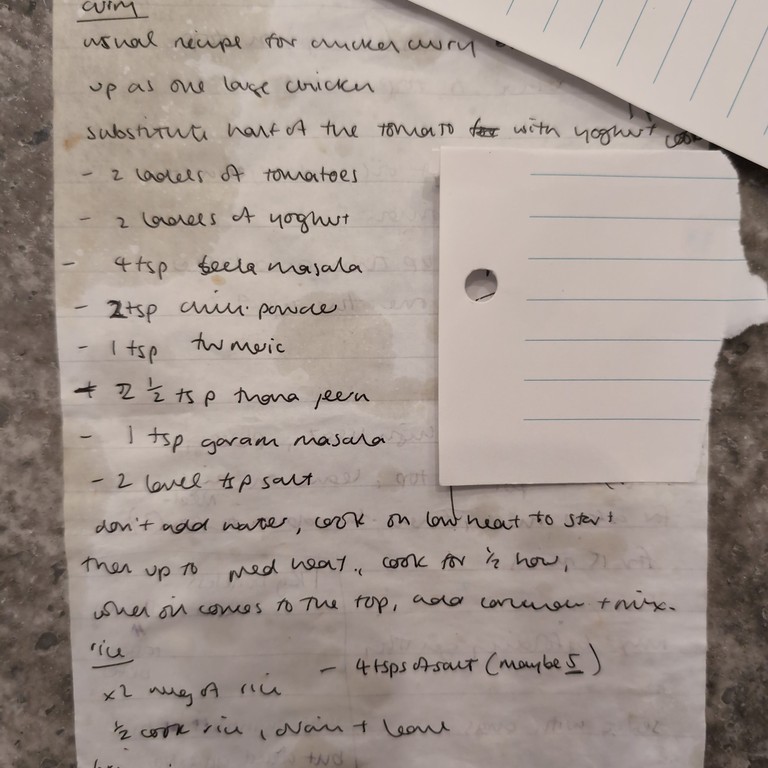 curry
usual recipe for chicken curry
up as one large chicken
substitute half of the tomato with yoghurt
- 2 ladels of tomatoes
- 2 ladels of yoghurt
- 4 tsp seela masala
- 2 tsp chilli powder
- 1 tsp turmeic
+ 2 ½ tsp thana jeera
- 1 tsp garam masala
- 2 level tsp salt
don't add water, cook on low heat to start
then up to med heat., cook for ½ hour,
when oil comes to the top, add + mix.
rice
- 4 tsps of salt (maybe 5)
x2 mug of rice
½ cook rice, drain + leave